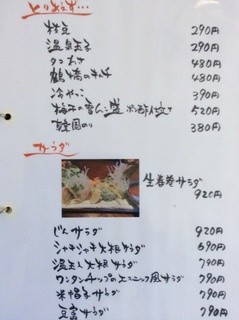 とりあえず…
枝豆 290円
温泉玉子 290円
タンネギ 480円
鶴橋のキムチ 480円
冷やっこ 390円
梅干の 520円
韓国のり 380円
サラダ
生春巻サラダ
920円
じんサラダ 920円
シャキシャキ大根サラダ 690円
温玉大根サラダ 790円
ワンタンチップのエスニック風サラダ 790円
水菜サラダ 790円
豆腐サラダ 790円